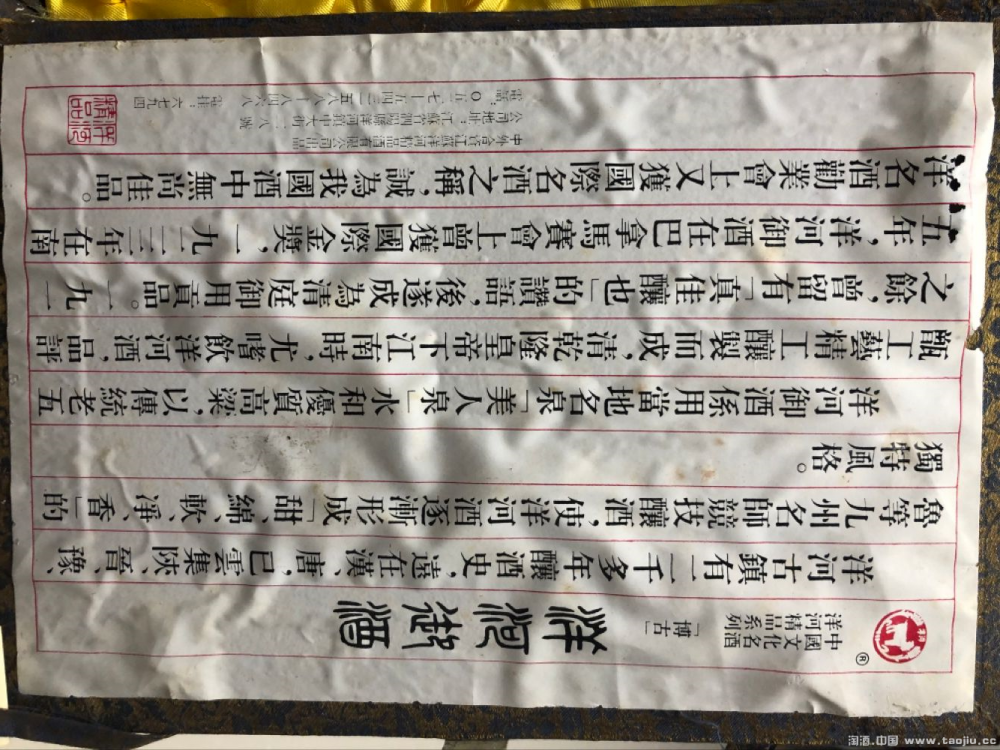 中國文化名酒
洋河精品系列
洋河御酒
「博古」
洋河古鎮有一千多年釀酒史,遠在漢、唐,已雲集陝、晉、豫、
魯等九州名師競技釀酒,使洋河酒逐漸形成「甜、綿、軟、凈、香」的
獨特風格。
洋河御酒係用當地名泉「美人泉」水和優質高粱,以傳統老五
甑工藝精工釀製而成,清乾隆皇帝下江南時,尤嗜飲洋河酒,品評
之餘,曾留有「真佳釀也」的讚語,後遂成為清庭御用貢品。一九一
五年,洋河御酒在巴拿馬賽會上曾獲國際金獎,一九二三年在南
洋名酒勸業會上又獲國際名酒之稱,誠為我國酒中無尚佳品。
中外合資江蘇洋河精品酒有限公司出品
公司地址:江蘇省泗陽縣洋河鎮中大街
電掛:六七九四
洋河精品
淘酒.中国 www.taojiu.cc